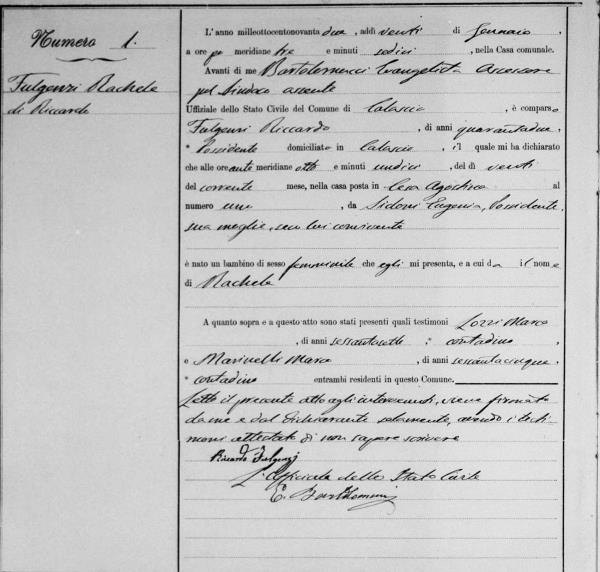 Numero 1.
Fulgenzi Rachele
di Riccardo
L'anno millottocentonovanta due, addì venti di Gennaio,
a ore po meridiane tre e minuti sedici, nella Casa comunale.
Avanti di me Bartolomucci Evangelista Assessore
pel Sindaco assente
Uffiziale dello Stato Civile del Comune di Calascio, è comparso
Fulgenzi Riccardo, di anni quarantadue,
Possidente domiciliato in Calascio, il quale mi ha dichiarato
che alle ore ante meridiane otto e minuti undici, del dì venti
del corrente mese, nella casa posta in al
numero uno, da Sidoni Eugenia, Possidente,
sua moglie, seco lui convivente
è nato un bambino di sesso femminile che egli mi presenta, e a cui dà il nome
di Rachele
A quanto sopra e a questo atto sono stati presenti quali testimoni Lozzi Marco
, di anni sessantasette, contadino
e Marinelli Marco, di anni sessantacinque,
contadino entrambi residenti in questo Comune.
Letto il presente atto agli intervenuti, viene firmato
da me e dal dichiarante solamente, avendo i testi-
moni attestato di non sapere scrivere
Riccardo Fulgenzi
L'Officiale dello Stato Civile
E. Bartolomucci